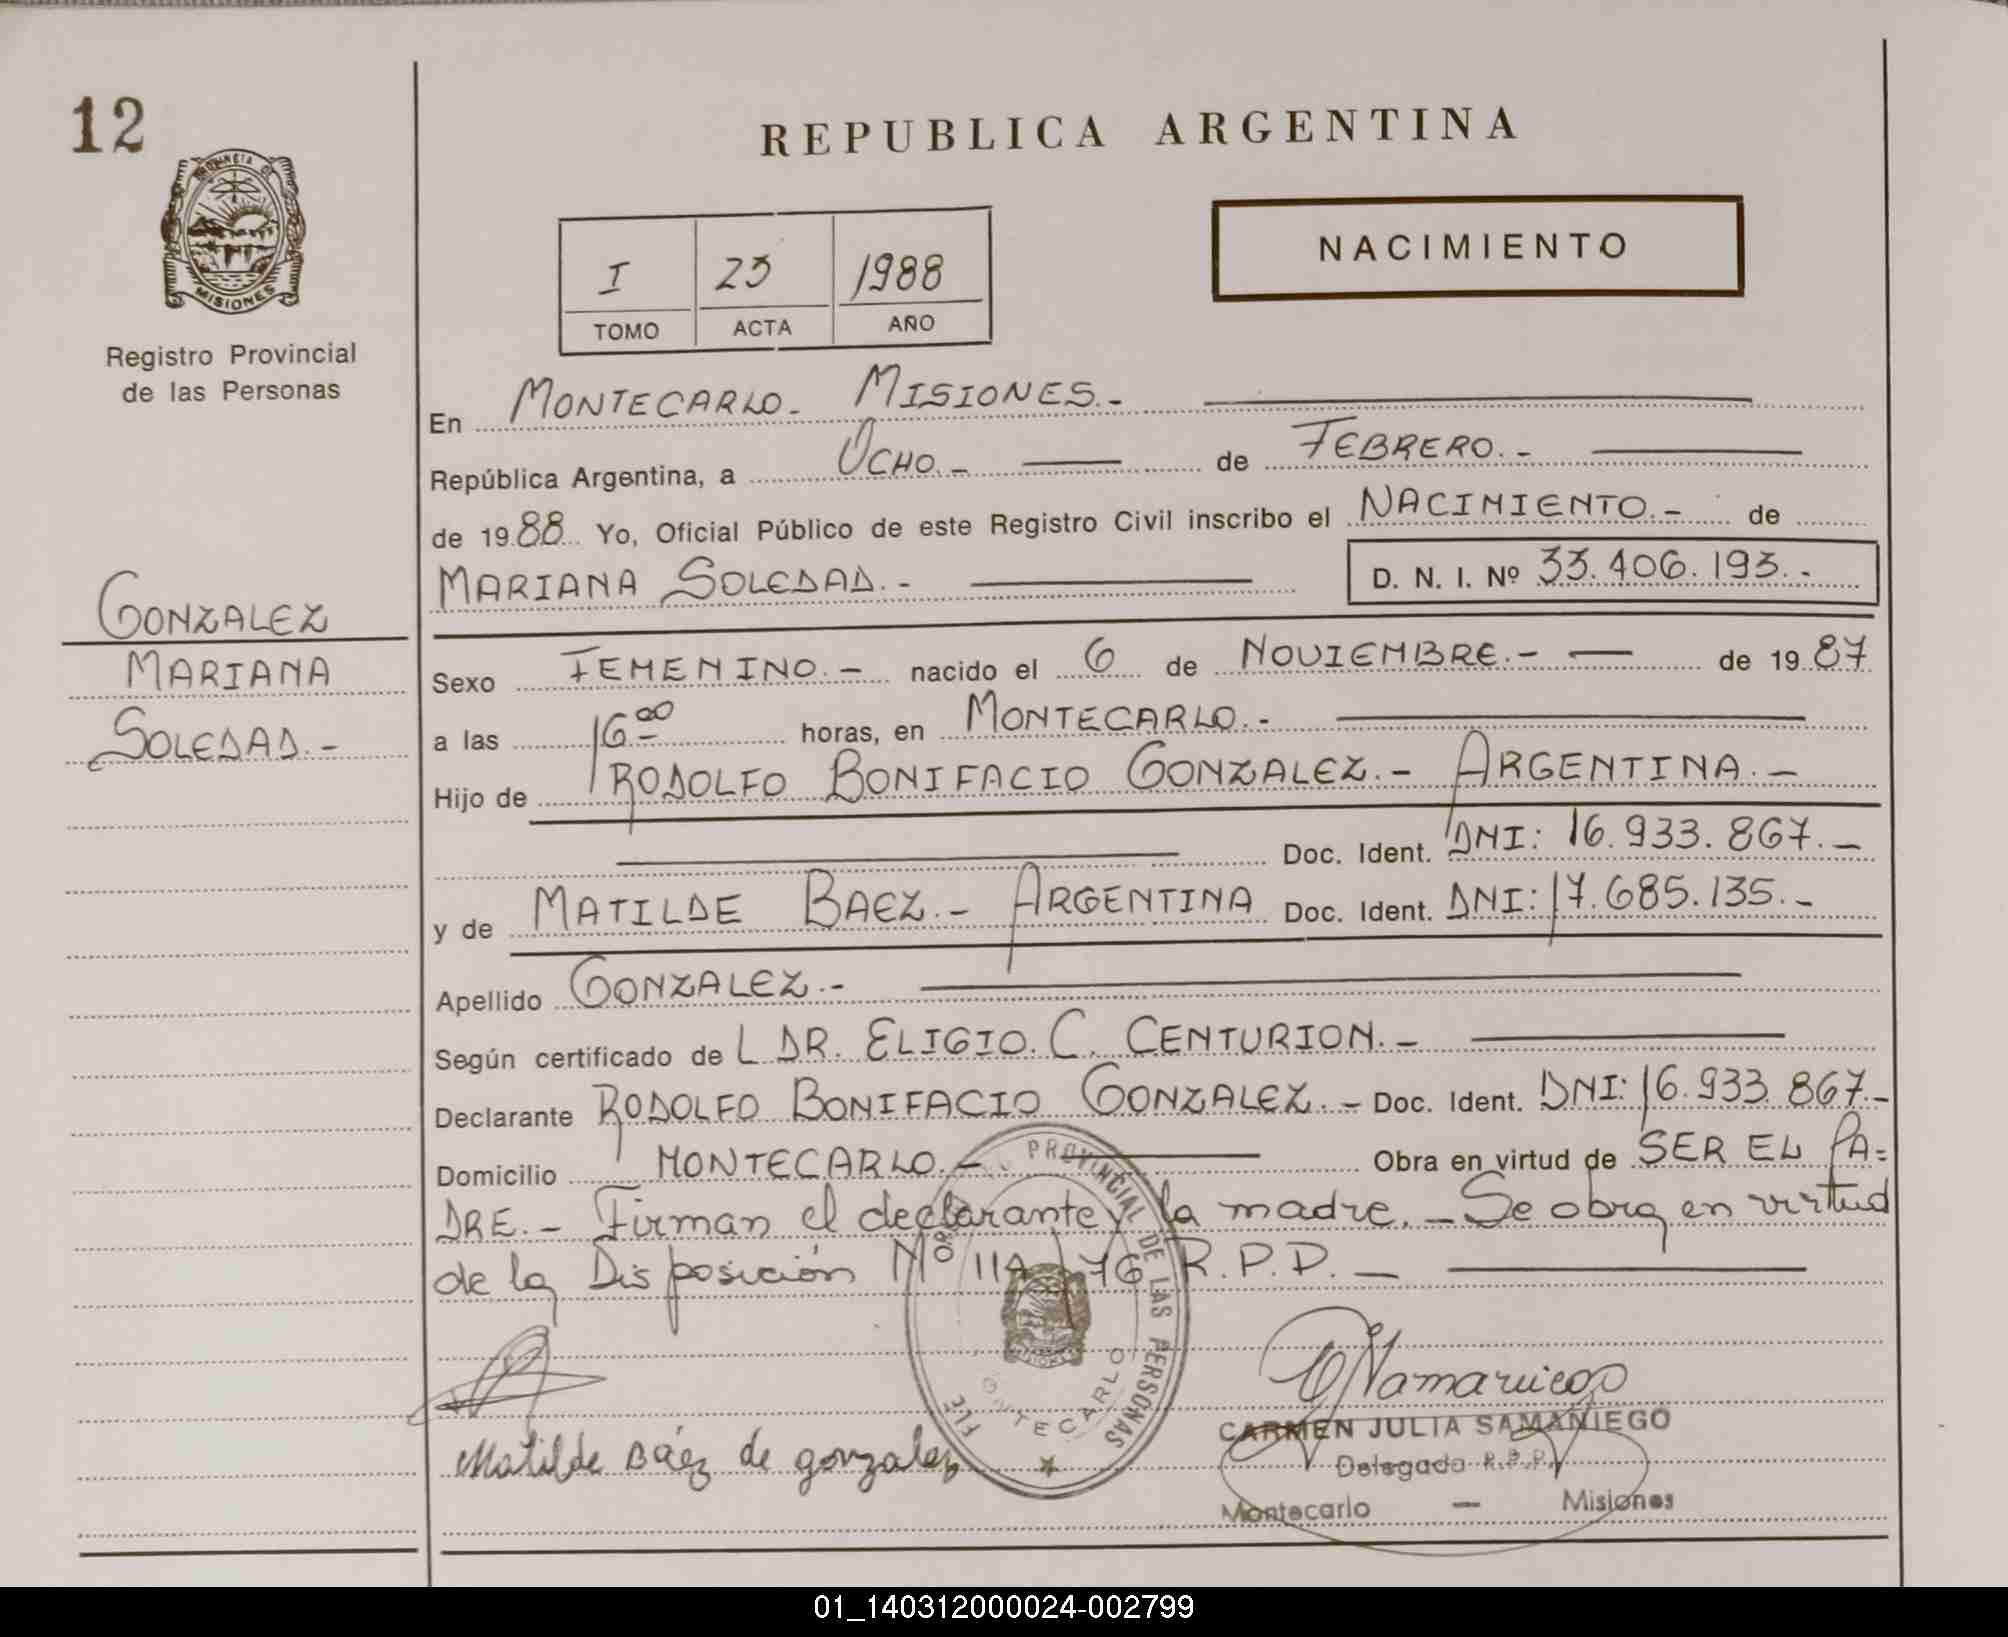 12
PROVINCIA DE
MISIONES
Registro Provincial
de las Personas
GONZALEZ
MARIANA
SOLEDAD.-
REPUBLICA ARGENTINA
NACIMIENTO
I 23 1988
TOMO ACTA AÑO
En MONTECARLO- MISIONES.-
República Argentina, a OCHO.- de FEBRERO.-
de 1988 Yo, Oficial Público de este Registro Civil inscribo el NACIMIENTO.- de
MARIANA SOLEDAD.- D. N. I. Nº 33.406.193.-
Sexo FEMENINO.- nacido el 6 de NOVIEMBRE.- de 1987
a las 16 00 horas, en MONTECARLO.-
Hijo de RODOLFO BONIFACIO GONZALEZ.- ARGENTINA.-
Doc. Ident. DNI: 16.933.867.-
y de MATILDE BAEZ.- ARGENTINA Doc. Ident. DNI: 17.685.135.-
Apellido GONZALEZ.-
Según certificado de L DR. ELIGIO. C. CENTURION.-
Declarante RODOLFO BONIFACIO GONZALEZ.- Doc. Ident. DNI: 16.933.867.-
Domicilio MONTECARLO.- Obra en virtud de SER EL PA=
DRE.- Firman el declarante y la madre.- Se obra en virtud
de la Disposición Nº 76 R.P.P.-
PROVINCIAL DE LAS PERSONAS
MONTECARLO
Matilde Báez de gonzalez
CARMEN JULIA SAMANIEGO
Delegada R.P.P.
Montecarlo - Misiones
01_140312000024-002799